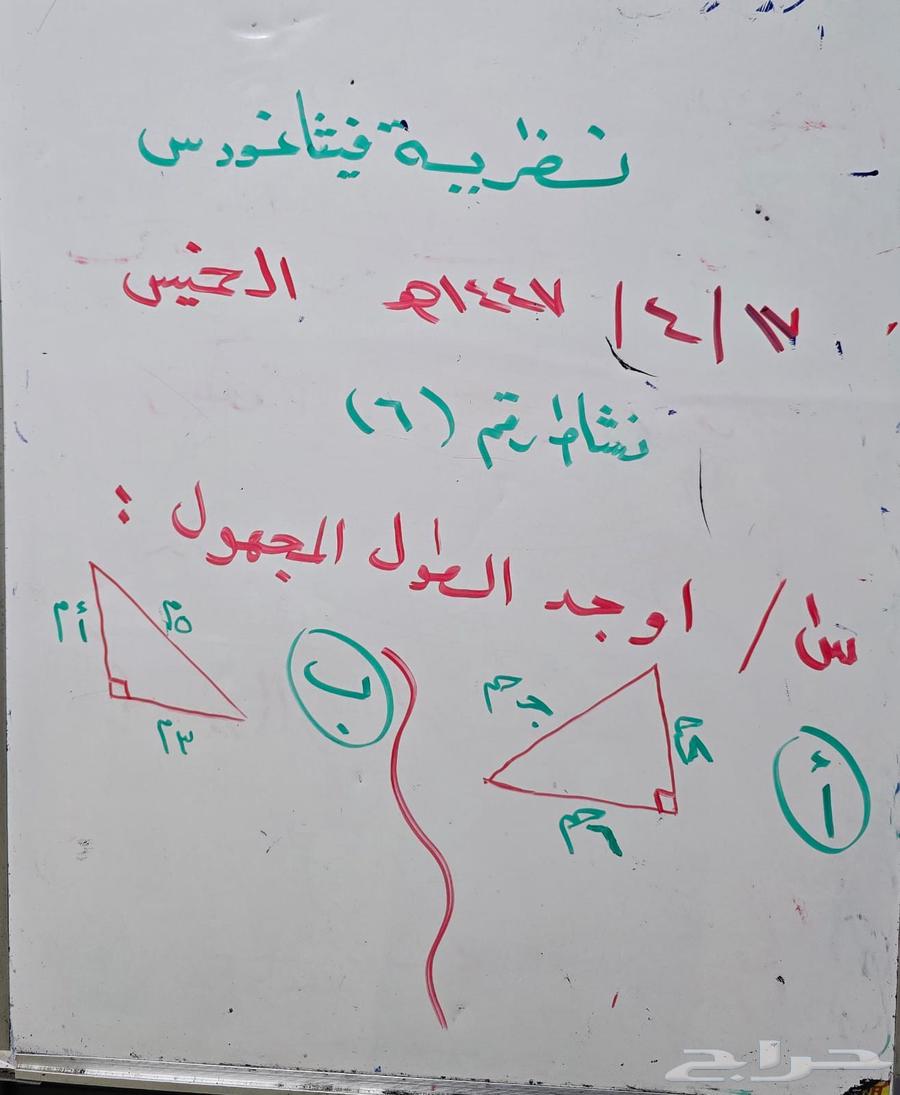 نظرية فيثاغورس
١٧ / ٤ / ١٤٤٧هـ الخميس
نشاط رقم (٦)
س١/ اوجد الطول المجهول :
أ
جـ م
٦ م
ب
٥ م
أ م
٣ م
حراج